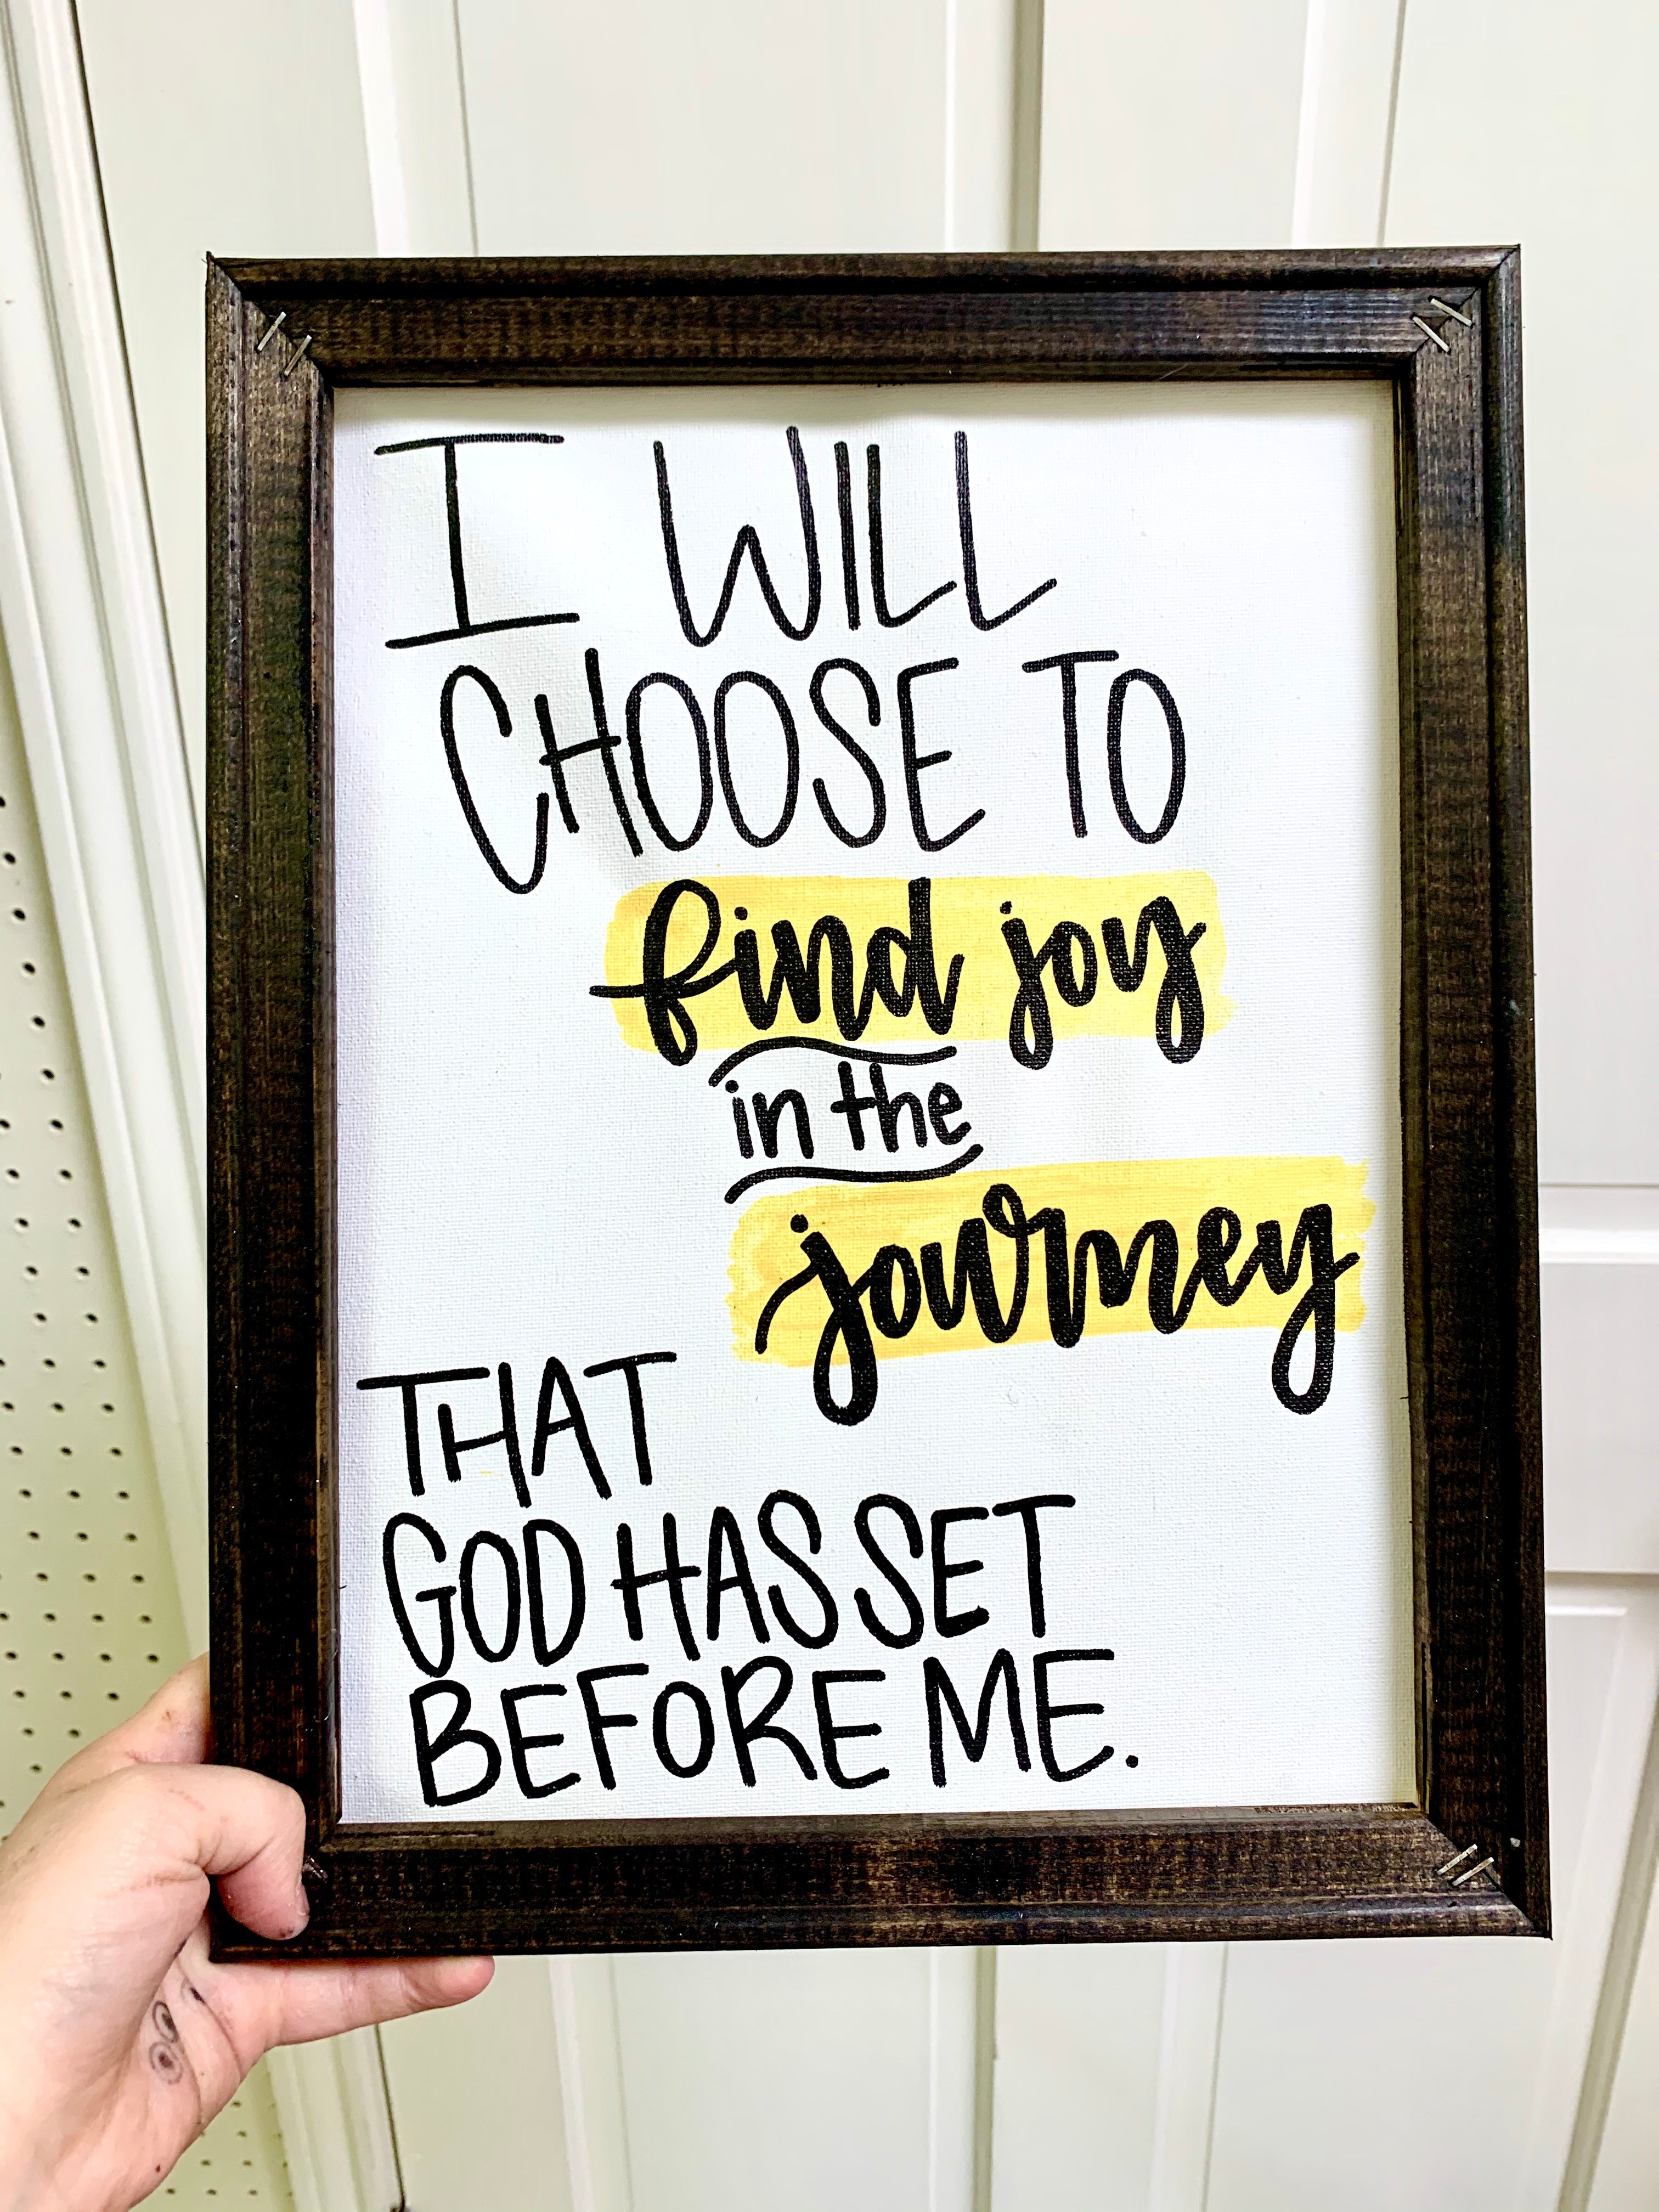 I WILL
CHOOSE TO
find joy
in the
journey
THAT
GOD HAS SET
BEFORE ME.